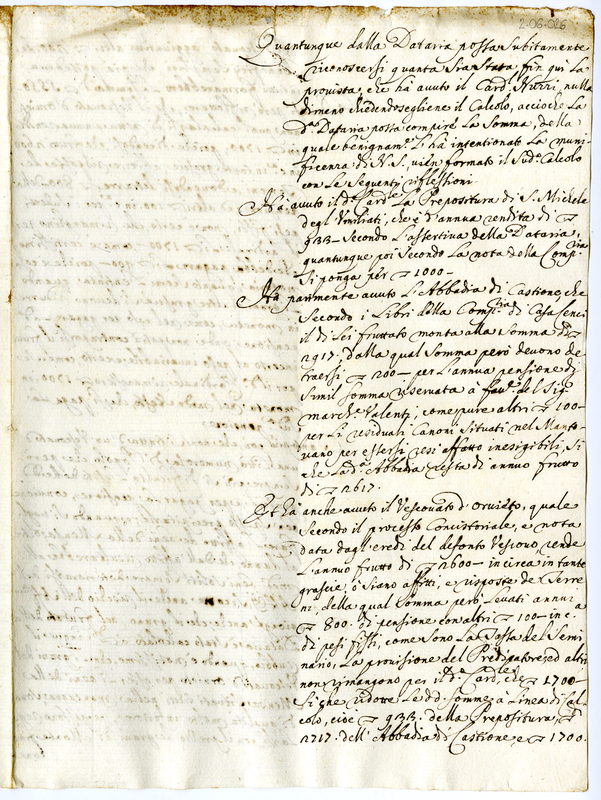 2-06-026
Quantunque dalla Dataria possa subitamente
riconoscersi quanta sia stata fin qui la
provista, che hà avuto il Card. Nuzzi, nulla
dimeno chiedendosegliene il Calcolo, accioche la
d.ª Dataria possa compire la somma, della
quale benignam.e li hà intentionato la muni-
ficenza di N. S., vien formato il sud.º Calcolo
con le seguenti riflessioni.
Hà avuto il d.º Card.le la Prepositura di S. Michele
degl'Umiliati, che è d'annua rendita di
933 – secondo l'assertiva della Dataria,
quantunque poi secondo la nota della Comp.ria
si ponga per 1000 –
Hà parimente avuto l'Abbadia di Castione, che
secondo i Libri della Comp.ria di Casa
il di lei fruttato monta alla somma di
2917; dalla qual somma però devono de-
traersi 200 – per l'annua pensione di
simil somma riservata à fav.e del Sig.
march.e Valenti, come pure altri 100 –
per li residuali Canoni situati nel Manto-
vano per essersi resi affatto inesigibili, si
che la d.ª Abbadia resta di annuo frutto
di 2617.
Et hà anche avuto il Vescovato d'Orvieto, quale
secondo il processo Concistoriale, e nota
data dagl'eredi del defonto Vescovo, rende
l'annuo frutto di 2600 – incirca in tante
grascie, ò siano affitti, e risposte de Terre-
ni, della qual somma però levati annui
800. di pensione con altri 100 – in c.ª
di pesi fissi, come sono la Tassa del Semi-
nario, la provisione del Predicatore, ed altri
non rimangono per il d.º Card.le che 1700 –
Si che ridotte le dd. somme à linea di Cal-
colo, cioè 933. della Prepositura,
2717. dell'Abbadia di Castione, e 1700.